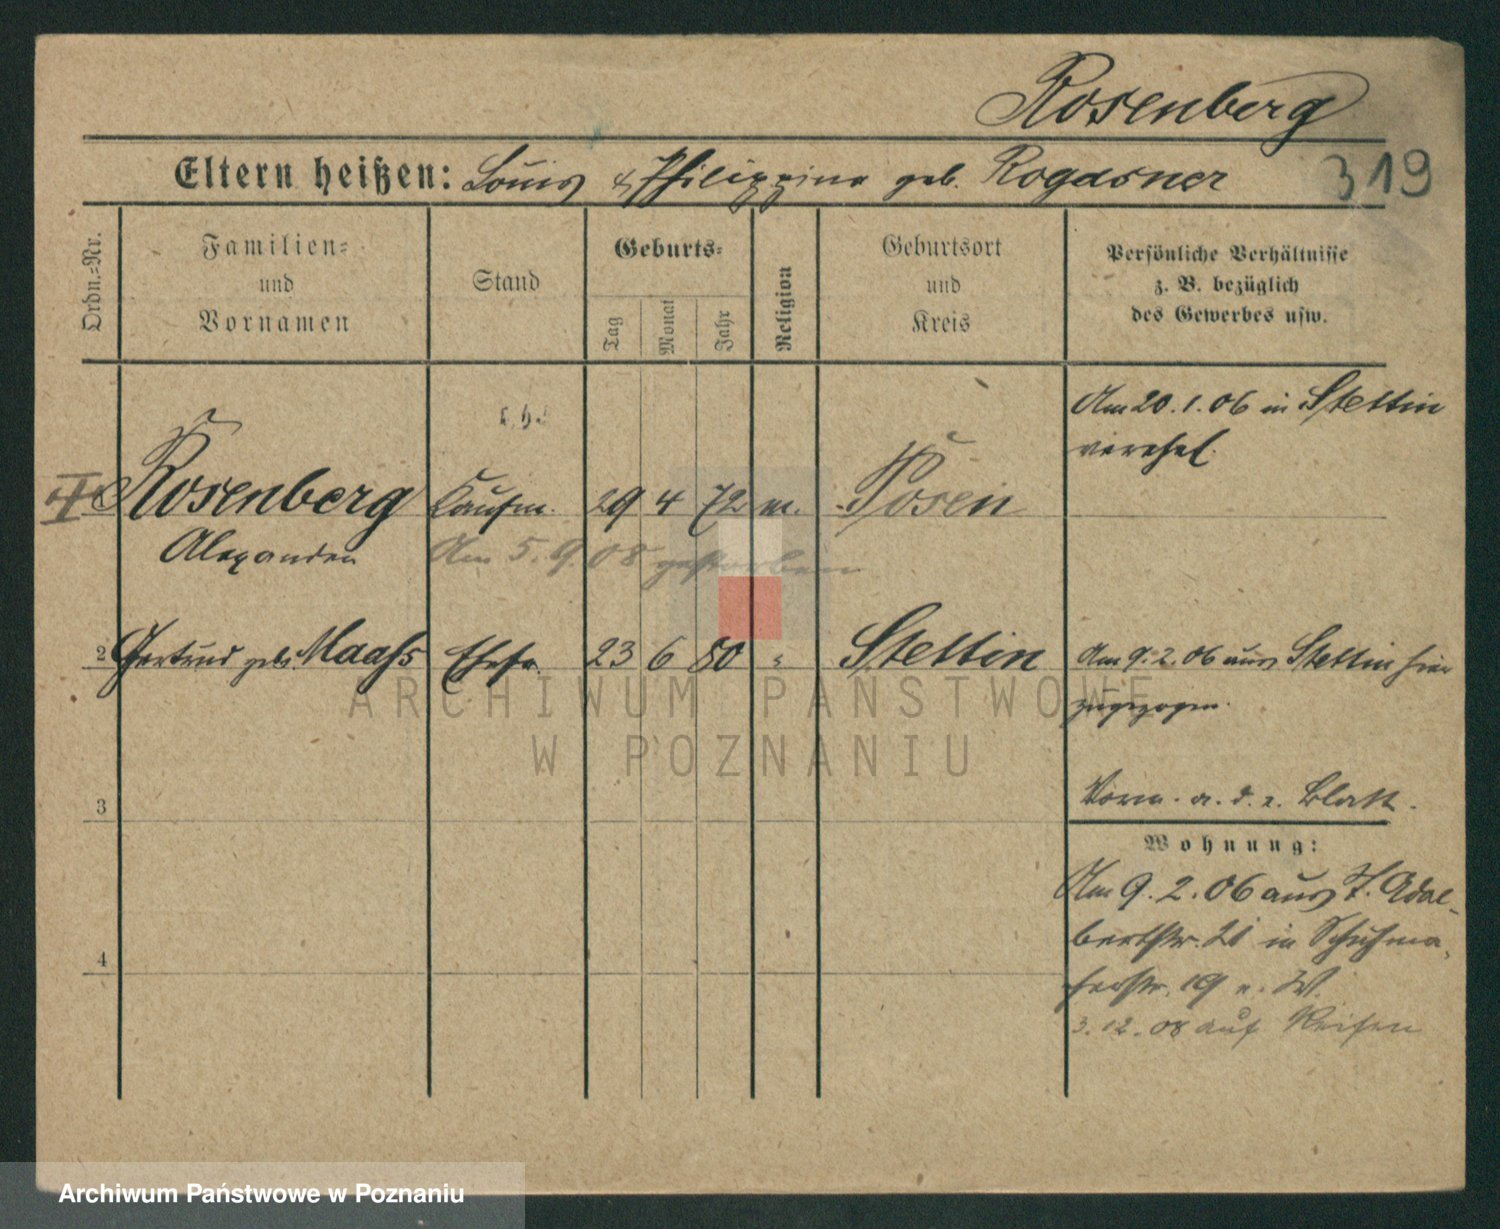 Rosenberg
Eltern heißen: Louis & Philippine geb. Rogasner
319
Ordn.=Nr.
Familien=
und
Vornamen
Stand
Geburts=
Tag
Monat
Jahr
Religion
Geburtsort
und
Kreis
Persönliche Verhältnisse
z. B. bezüglich
des Gewerbes usw.
Am 20.1.06 in Stettin
verehel.
Rosenberg Kaufm. 29 4 72 m. Posen
Alexander
Am 5.9.08 gestorben
2 Gertrud geb. Maaß Ehefr. 23 6 80 " Stettin
Am 9.2.06 aus Stettin hier
zugezogen.
3
Blatt.
Wohnung:
Am 9.2.06 aus St. Adal-
bertstr. 21 in Schuhma-
cherstr. 19 v. W.
4
3.12.08 auf Reisen
ARCHIWUM PAŃSTWOWE
W POZNANIU
Archiwum Państwowe w Poznaniu